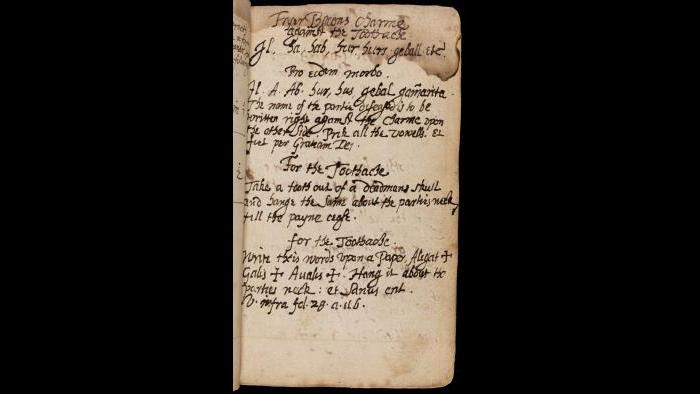 Fryer Bacons Charme
against the Toothache
Il, ha, hab, hur, hurs, geball. etc.
Pro eodem morbo.
Il. A. Ab. hur, hus, gebal gamarita.
The name of the partie diseased is to be
written right against the Charme upon
the other side. Prik all the vowells. Et
fiet per Gratiam Dei.
For the Toothache
Take a tooth out of a deadmans skull
and hange the same about the parties neck
till the payne cease.
for the Toothache
Write theis words upon a Paper. Aligat +
Galis + Aualis +. Hang it about the
parties neck: et sanus erit.
V. infra fol. 28. a.